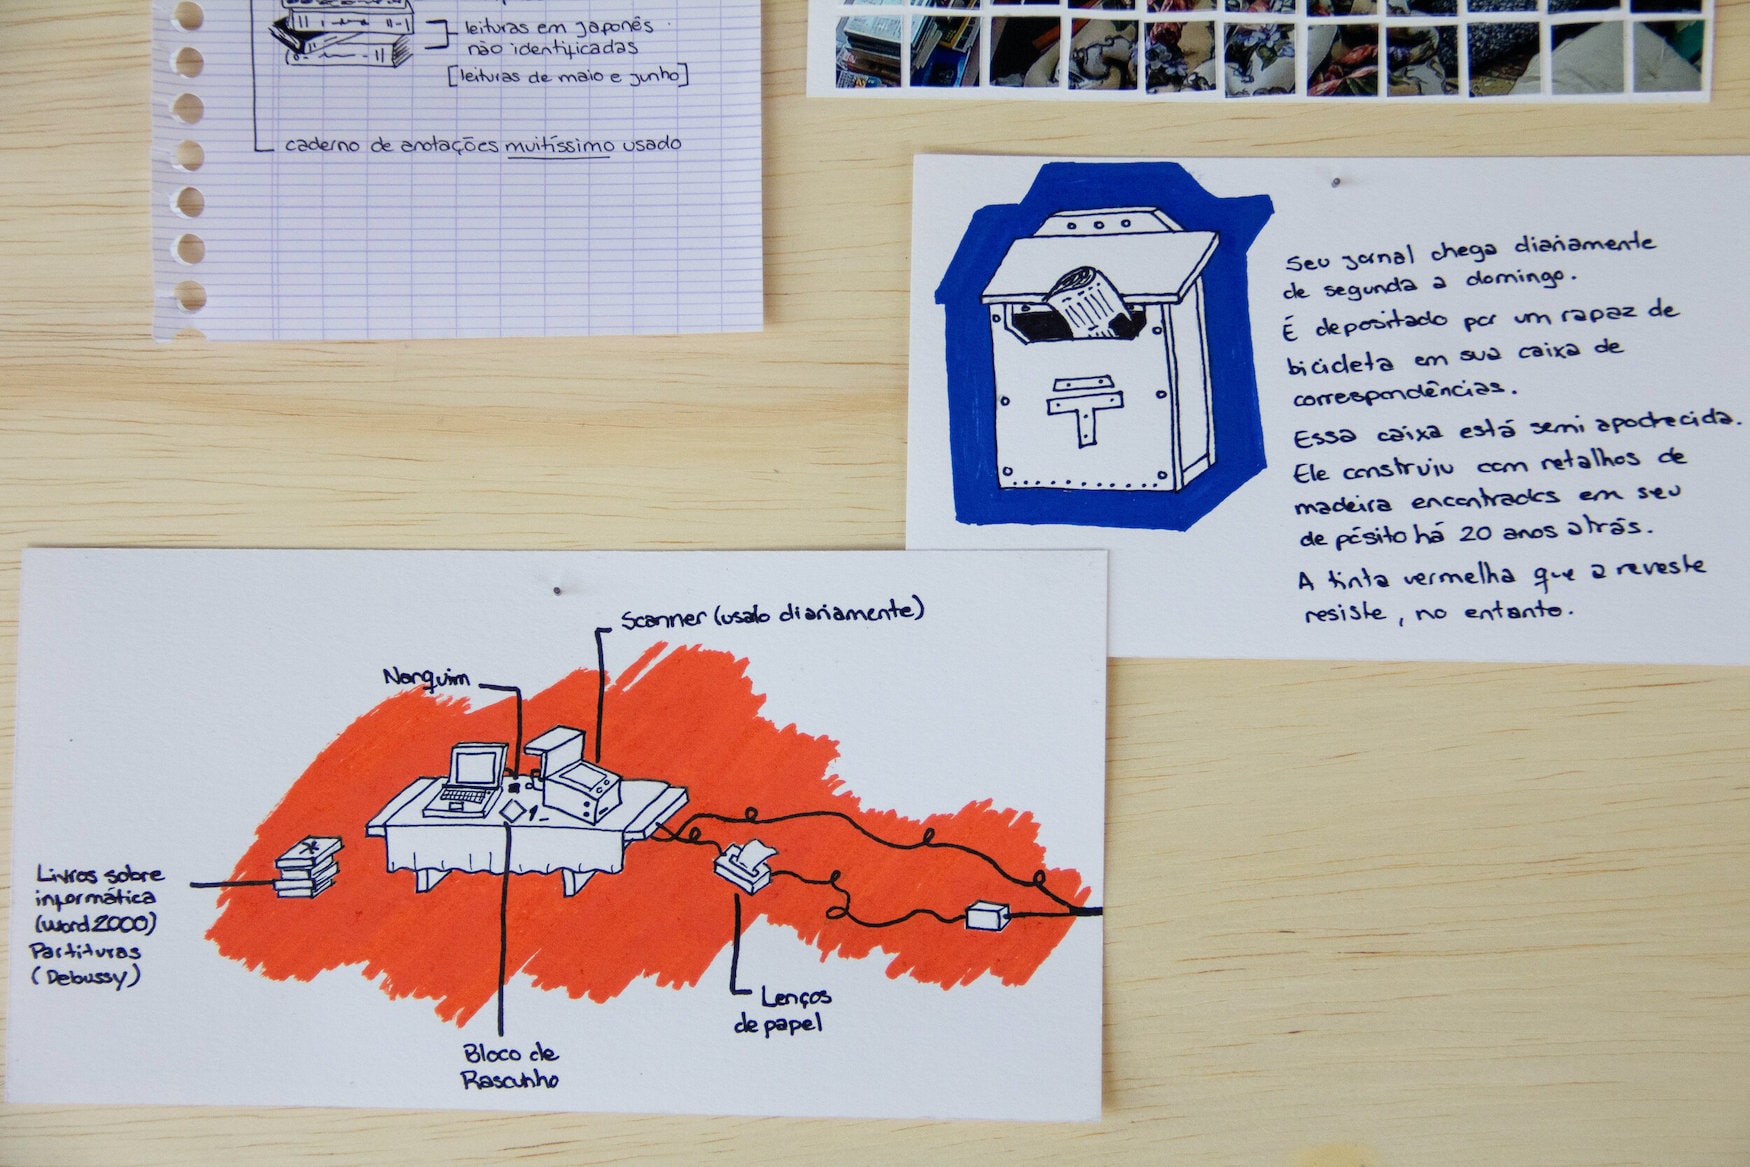 leituras em japonês
não identificadas
[leituras de maio e junho]
caderno de anotações muitíssimo usado
Seu jornal chega diariamente
de segunda a domingo.
É depositado por um rapaz de
bicicleta em sua caixa de
correspondências.
Essa caixa está semi apodrecida.
Ele construiu com retalhos de
madeira encontrados em seu
depósito há 20 anos atrás.
A tinta vermelha que a reveste
resiste, no entanto.
Scanner (usado diariamente)
Nanquim
Livros sobre
informática
(Word 2000)
Partituras
(Debussy)
Lenços
de papel
Bloco de
Rascunho